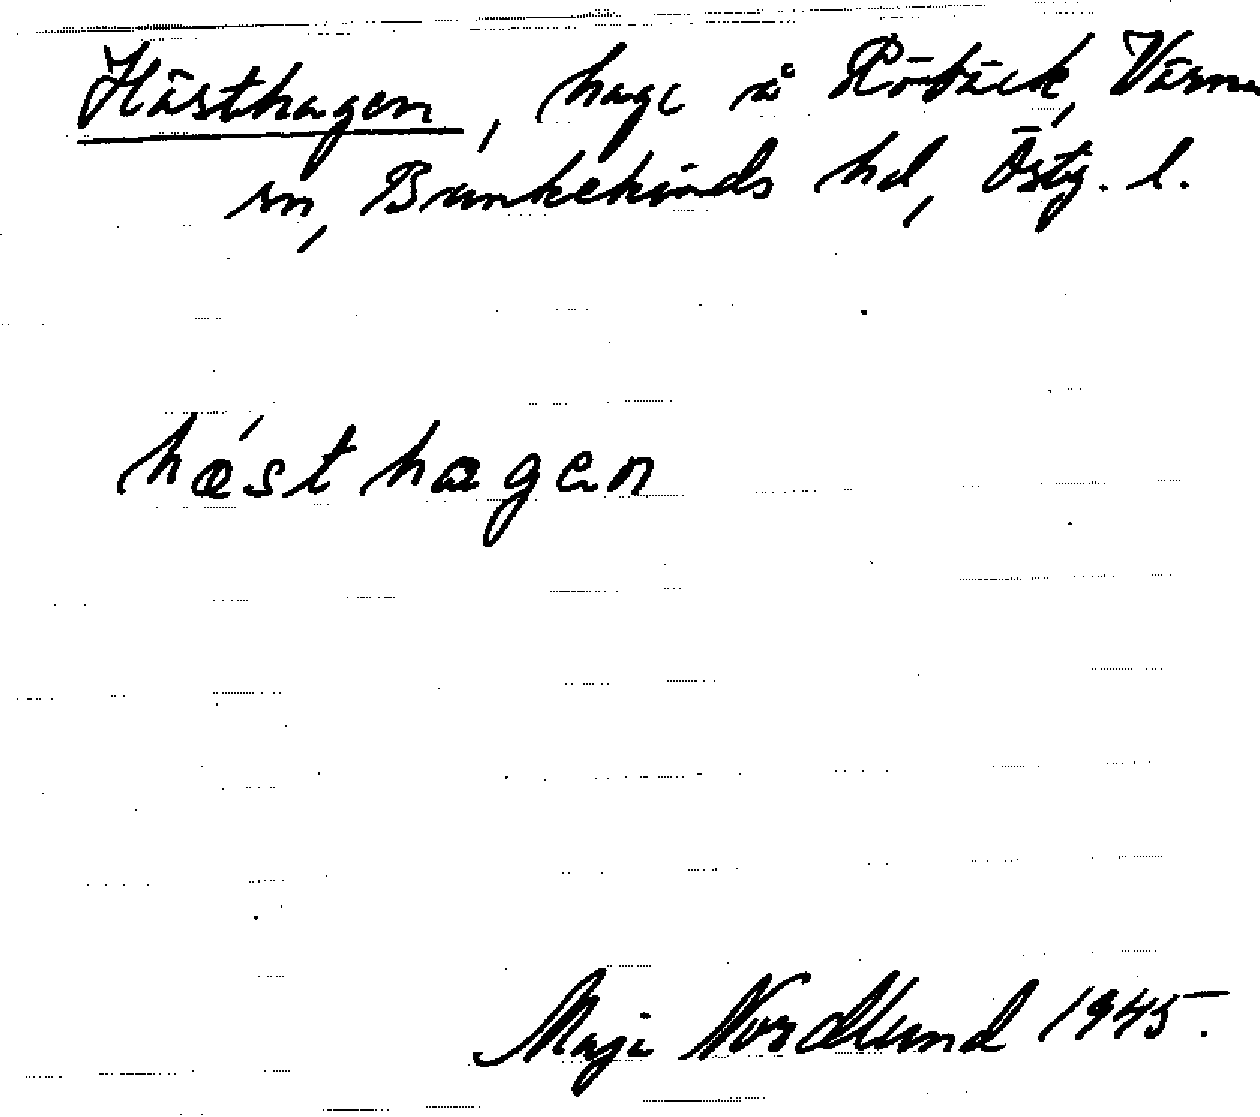 Hästhagen, hage å Rödbäck, Värna
sn, Bankekinds hd, Östg. l.
hæ´sthagen
Maja Nordlund 1945.